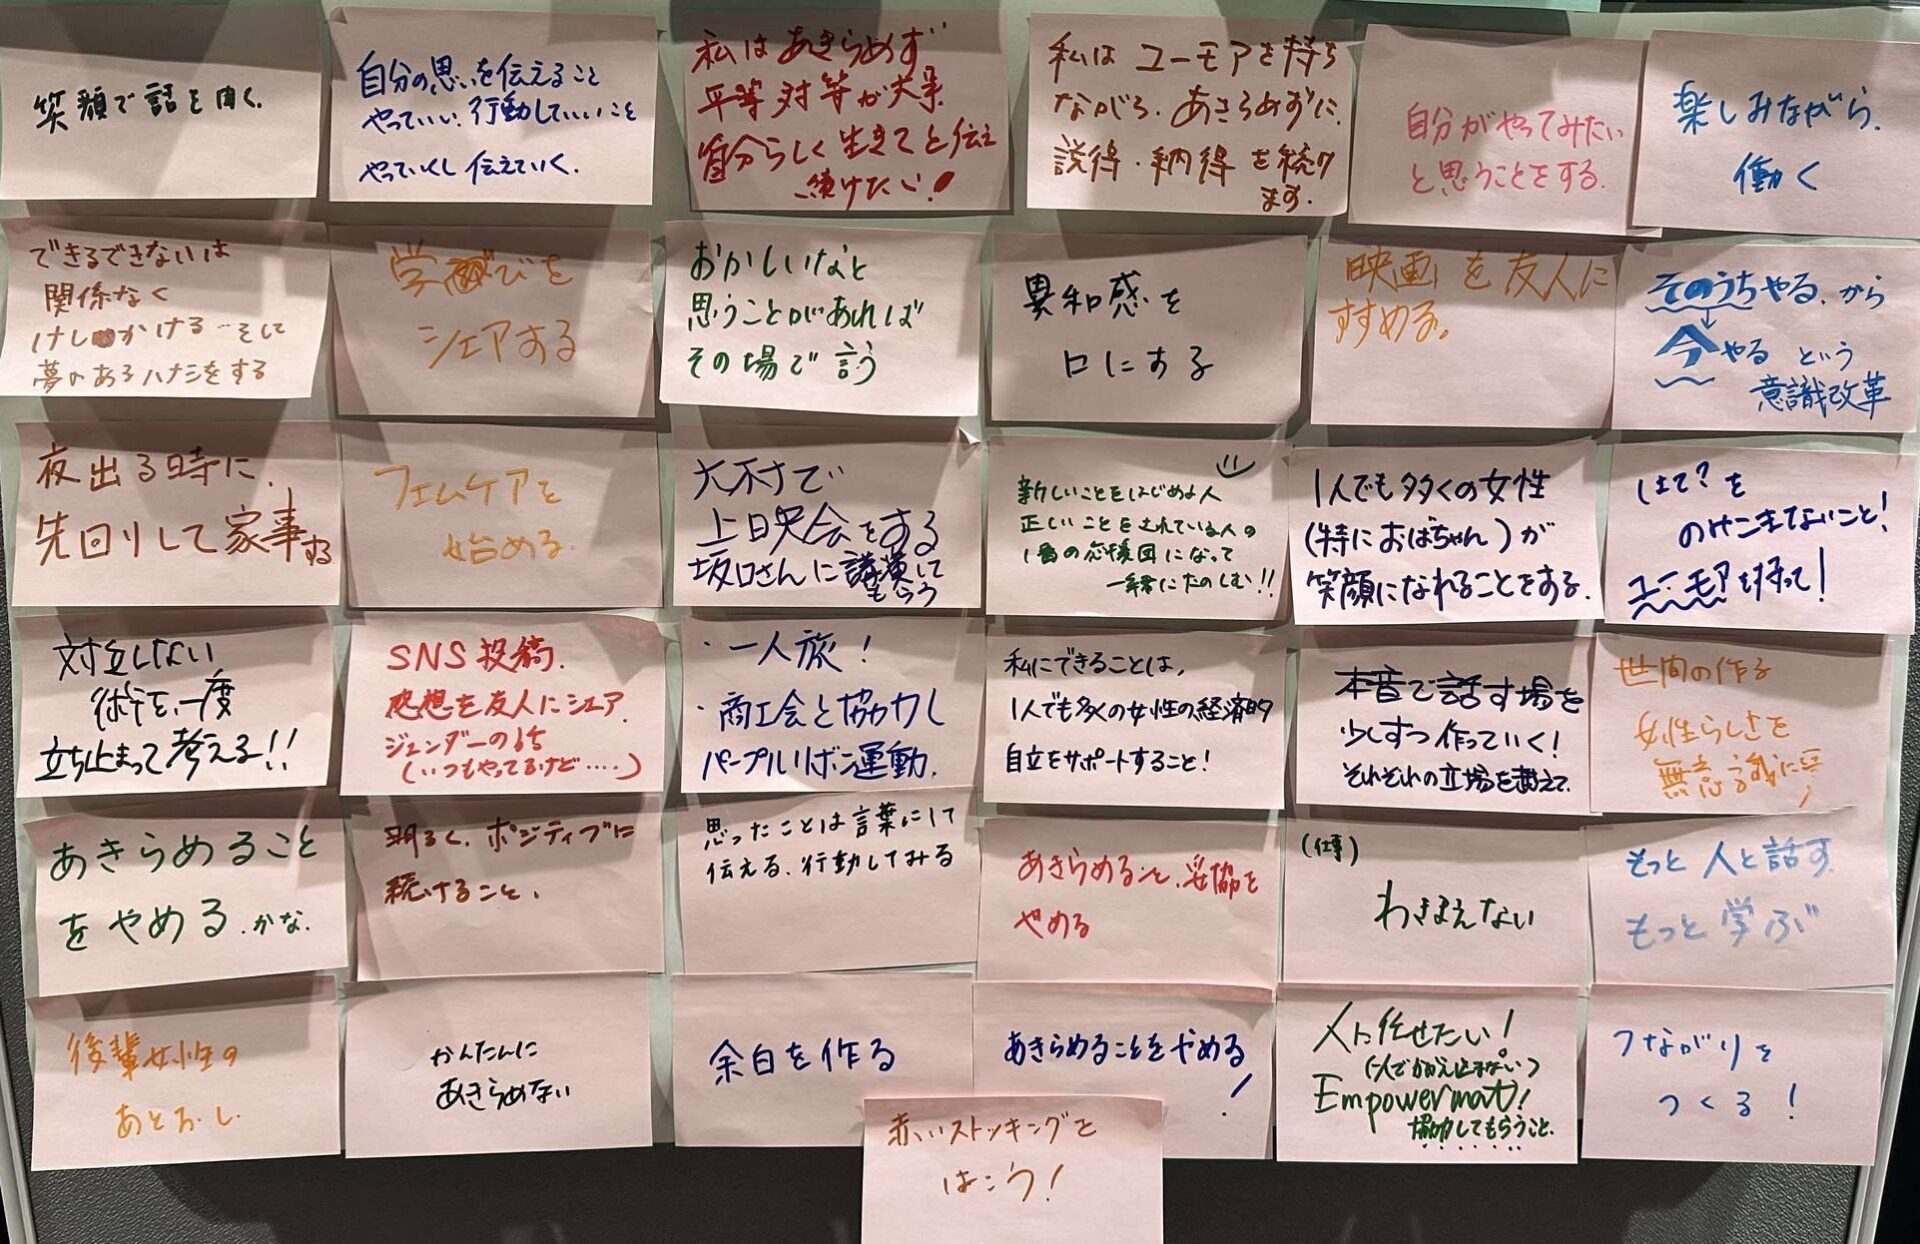 笑顔で話を聞く.
自分の思いを伝えること
やっていい.行動していいこと
やっていくし伝えていく.
私はあきらめず
平等対等が大事.
自分らしく生きてと伝え
続けたい!
私はユーモアを持ち
ながら、あきらめずに、
説得・納得を続け
ます.
自分がやってみたい
と思うことをする.
楽しみながら、
働く
できるできないは
関係なく
けしかける…そして
夢のあるハナシをする
学びを
シェアする
おかしいなと
思うことがあれば
その場で言う
異和感を
口にする
映画を友人に
すすめる。
そのうちやる、から
↓
今やる という
意識改革
夜出る時に、
先回りして家事する
フェムケアを
始める.
大村で
上映会をする
坂口さんに講演して
もらう
新しいことをはじめる人
正しいことをされている人の
1番の応援団になって
一緒にたのしむ!!
1人でも多くの女性
(特におばちゃん)が
笑顔になれることをする.
はて?を
のみこまないこと!
ユーモアを持って!
対立しない
術を、一度
立ち止まって考える!!
SNS投稿.
感想を友人にシェア.
ジェンダーの話
(いつもやってるけど‥‥.)
・一人旅!
・商工会と協力し
パープルリボン運動.
私にできることは,
1人でも多くの女性の経済的
自立をサポートすること!
本音で話す場を
少しずつ作っていく!
それぞれの立場を越えて.
世間の作る
女性らしさを
無意識に
あきらめること
をやめる.かな.
明るく、ポジティブに
続けること、
思ったことは言葉にして
伝える、行動してみる
あきらめること、妥協を
やめる
(仕事)
わきまえない
もっと人と話す.
もっと学ぶ
後輩女性の
あとおし.
かんたんに
あきらめない
余白を作る
あきらめることをやめる
!
人に任せたい!
(一人でかかえ止まない)
Empowermat!
協力してもらうこと.
つながりを
つくる!
赤いストッキングを
はこう!